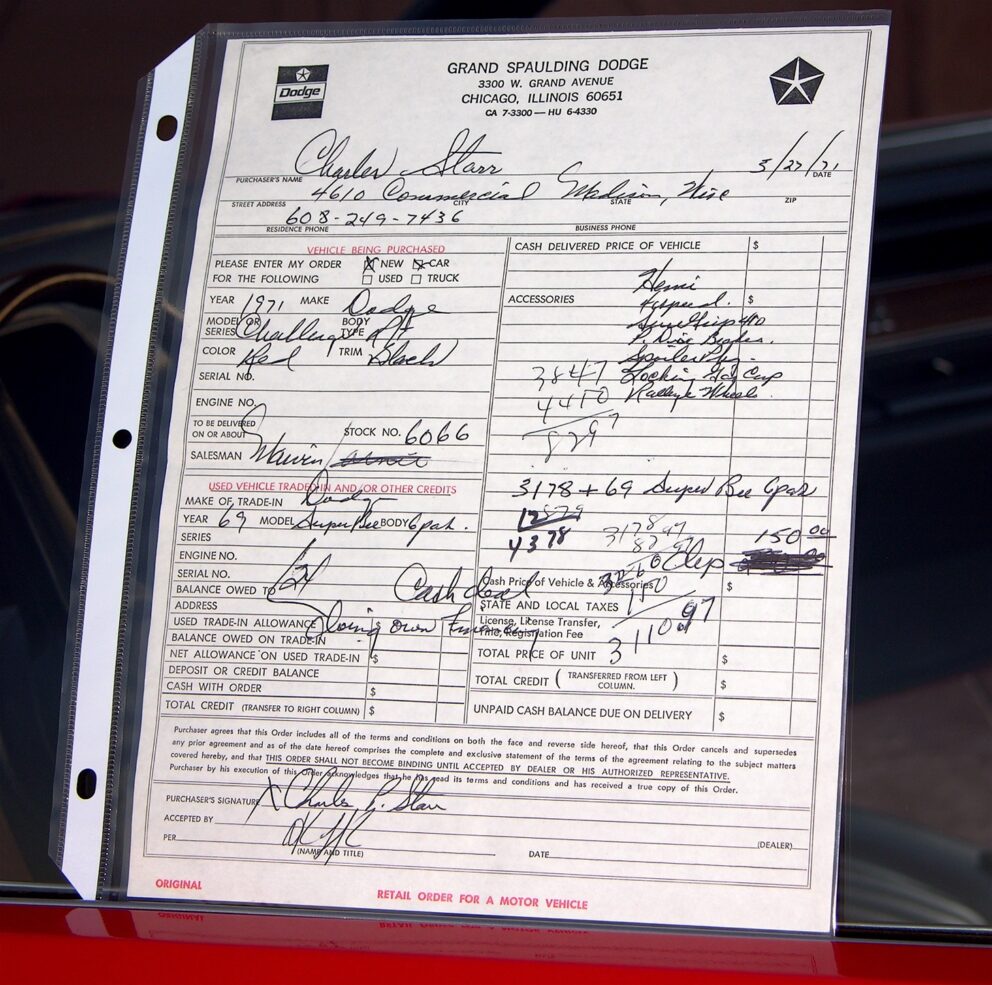 Dodge
GRAND SPAULDING DODGE
3300 W. GRAND AVENUE
CHICAGO, ILLINOIS 60651
CA 7-3300 — HU 6-4330
Charles Starr 3/27/71
PURCHASER'S NAME DATE
4610 Commercial Madison, Wisc
STREET ADDRESS CITY STATE ZIP
608-249-7436
RESIDENCE PHONE BUSINESS PHONE
VEHICLE BEING PURCHASED
PLEASE ENTER MY ORDER X NEW X CAR
FOR THE FOLLOWING USED TRUCK
YEAR 1971 MAKE Dodge
MODEL OR SERIES Challenger BODY TYPE RT
COLOR Red TRIM Black
SERIAL NO.
ENGINE NO.
TO BE DELIVERED ON OR ABOUT STOCK NO. 6066
SALESMAN Marvin
USED VEHICLE TRADED IN AND/OR OTHER CREDITS
MAKE OF TRADE-IN Dodge
YEAR 69 MODEL Super Bee BODY 6 pak.
SERIES
ENGINE NO.
SERIAL NO.
BALANCE OWED TO
ADDRESS
USED TRADE-IN ALLOWANCE
BALANCE OWED ON TRADE-IN
NET ALLOWANCE ON USED TRADE-IN $
DEPOSIT OR CREDIT BALANCE
CASH WITH ORDER $
TOTAL CREDIT (TRANSFER TO RIGHT COLUMN) $
Cash deal
own
CASH DELIVERED PRICE OF VEHICLE $
Hemi
ACCESSORIES 4 speed. $
P. Disc Brakes.
Spoiler Pkg.
3847 Locking Gas Cap
4410 Ralleye Wheels.
3178 + 69 Super Bee 6 pak
4378
150 00
Dep
Cash Price of Vehicle & Accessories $
STATE AND LOCAL TAXES
License, License Transfer,
Title, Registration Fee
TOTAL PRICE OF UNIT $
TOTAL CREDIT (TRANSFERRED FROM LEFT COLUMN.) $
UNPAID CASH BALANCE DUE ON DELIVERY $
Purchaser agrees that this Order includes all of the terms and conditions on both the face and reverse side hereof, that this Order cancels and supersedes
any prior agreement and as of the date hereof comprises the complete and exclusive statement of the terms of the agreement relating to the subject matters
covered hereby, and that THIS ORDER SHALL NOT BECOME BINDING UNTIL ACCEPTED BY DEALER OR HIS AUTHORIZED REPRESENTATIVE.
Purchaser by his execution of this Order acknowledges that he has read its terms and conditions and has received a true copy of this Order.
PURCHASER'S SIGNATURE X Charles R. Starr
ACCEPTED BY
PER (NAME AND TITLE) DATE (DEALER)
ORIGINAL
RETAIL ORDER FOR A MOTOR VEHICLE